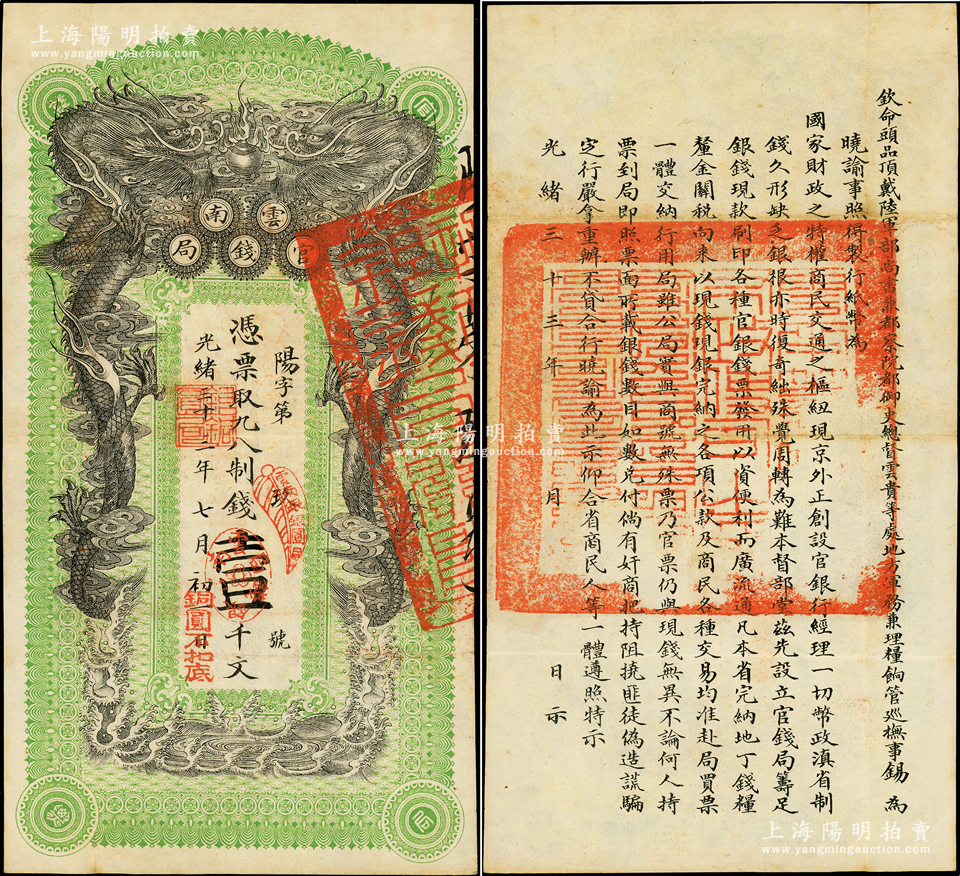 上海陽明拍賣
www.yangmingauction.com
雲南
官錢局
陽字第 號
憑票取九八制錢壹千文
光緒三十三年七月初 日
銅圓不扣底
上海陽明拍賣
www.yangmingauction.com
欽命頭品頂戴陸軍部尚書兼都察院都御史總督雲貴等處地方軍務兼理糧餉管巡撫事錫 為
曉諭事照得製行紙幣為
國家財政之特權商民交通之樞紐現京外正創設官銀行經理一切幣政滇省制
錢久形缺乏銀根亦時復奇絀殊覺周轉為難本督部堂茲先設立官錢局籌足
銀錢現款刷印各種官銀錢票發用以資便利而廣流通凡本省完納地丁錢糧
釐金關稅向來以現錢現銀完納之各項公款及商民各種交易均准赴局買票
一體交納行用局雖公局實與商號無殊票乃官票仍與現錢無異不論何人持
票到局即照票面所載銀錢數目如數兌付倘有奸商把持阻撓匪徒偽造謊騙
定行嚴拿重辦不貸合行曉諭為此示仰合省商民人等一體遵照特示
光緒三十三年 月 日示
上海陽明拍賣
www.yangmingauction.com